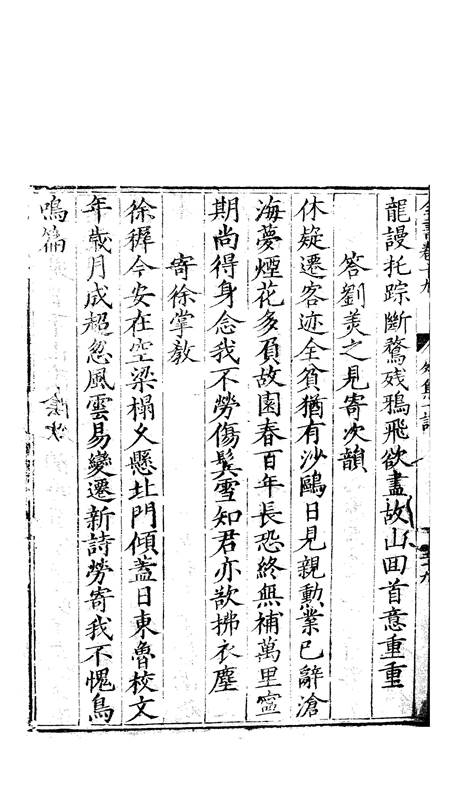 龍謾托踪斷鶩殘鴉飛欲盡故山回首意重重
答劉美之見寄次韻
休疑遷客迹全貧猶有沙鷗日見親勳業已辭滄
海夢煙花多負故園春百年長恐終無補萬里寧
期尚得身念我不勞傷鬢雪知君亦欲拂衣塵
寄徐掌教
徐穉今安在空梁榻久懸北門傾蓋日東魯校文
年歲月成超忽風雲易變遷新詩勞寄我不愧鳥
鳴篇